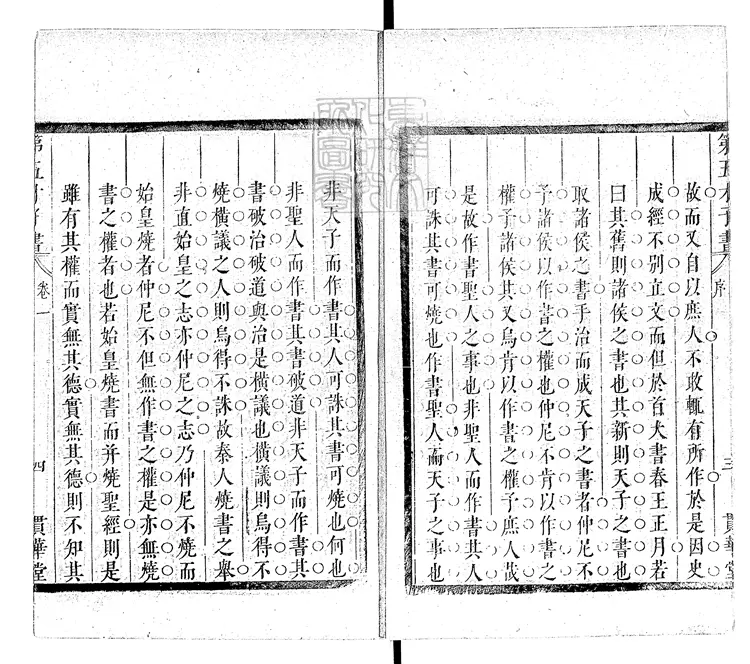 第五才子書
序
三
貫華堂
故而又自以庶人不敢輒有所作於是因史
成經不別立文而但於首大書春王正月若
曰其舊則諸侯之書也其新則天子之書也
取諸侯之書手治而成天子之書者仲尼不
予諸侯以作書之權也仲尼不肯以作書之
權予諸侯其又烏肯以作書之權予庶人哉
是故作書聖人之事也非聖人而作書其人
可誅其書可燒也作書聖人而天子之事也
非天子而作書其人可誅其書可燒也何也
非聖人而作書其書破道非天子而作書其
書破治破道與治是橫議也橫議則烏得不
燒橫議之人則烏得不誅故秦人燒書之舉
非直始皇之志亦仲尼之志乃仲尼不燒而
始皇燒者仲尼不但無作書之權是亦無燒
書之權者也若始皇燒書而并燒聖經則是
雖有其權而實無其德實無其德則不知其
第五才子書
卷一
四
貫華堂